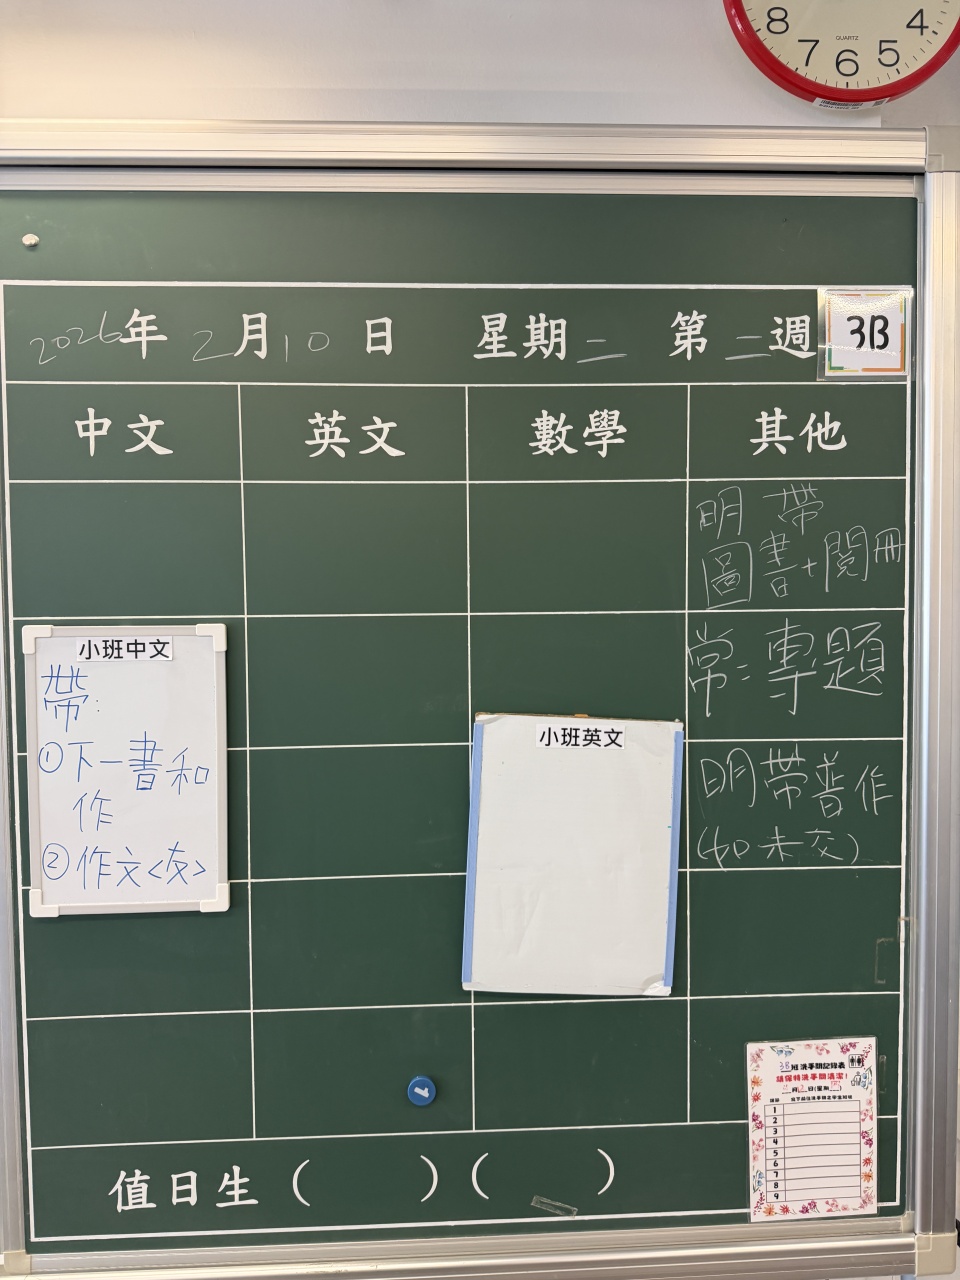 8 7 6 5 4
QUARTZ
2026年 2月10日 星期二 第二週 3B
中文 英文 數學 其他
明 帶
圖書+閱冊
常:專題
明帶普作
(如未交)
小班中文
帶:
①下一書和
作
②作文<友>
小班英文
1
3B班洗手間記錄表
請保持洗手間清潔!
1
2
3
4
5
6
7
8
9
值日生( )( )